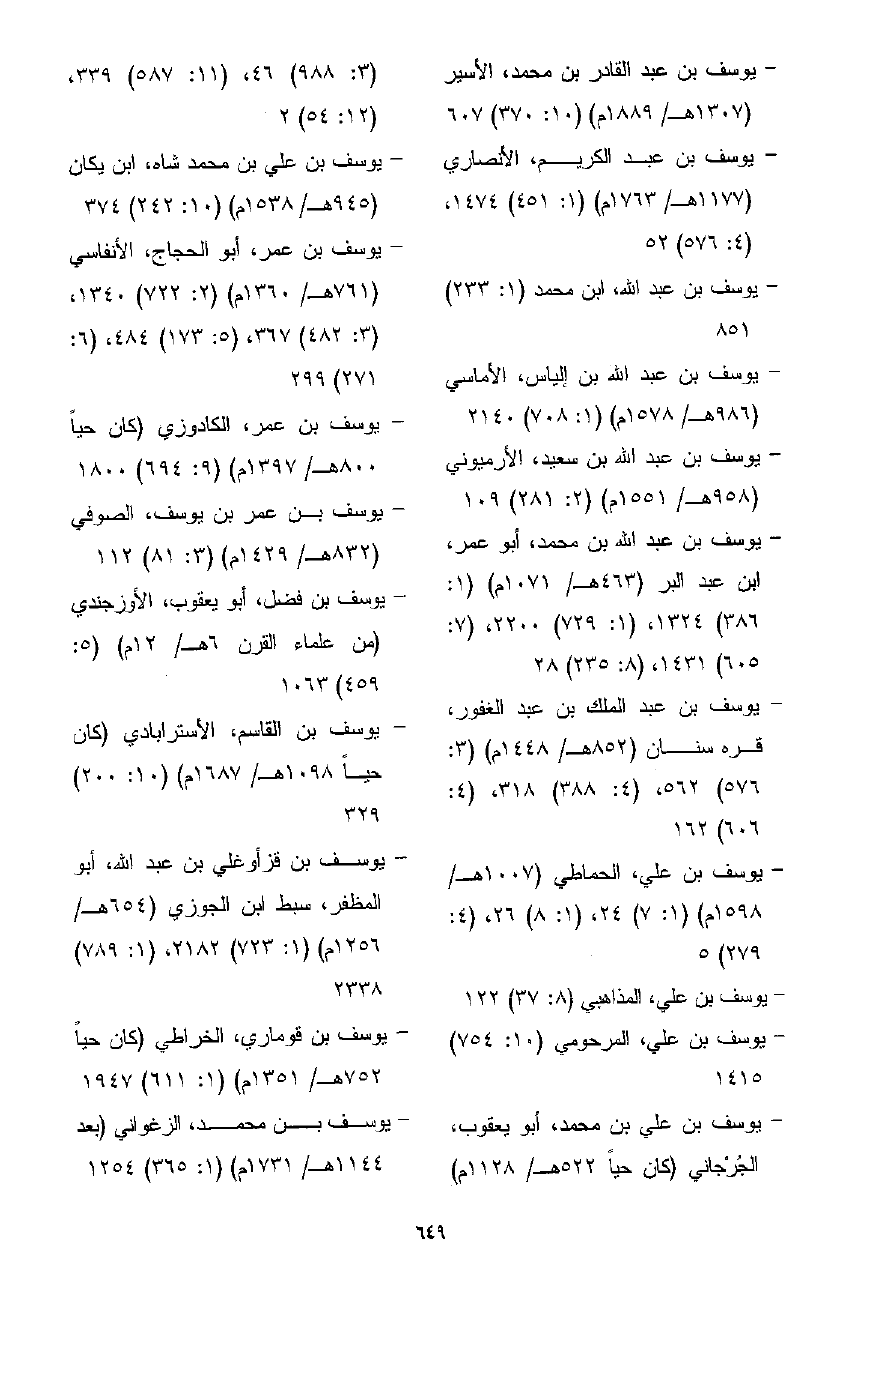 - يوسف بن عبد القادر بن محمد، الأسير
(١٣٠٧هـ/ ١٨٨٩م) (١٠: ٣٧٠) ٦٠٧
- يوسف بن عبد الكريم، الأنصاري
(١١٧٧هـ/ ١٧٦٣م) (١: ٤٥١) ١٤٧٤،
(٤: ٥٧٦) ٥٢
- يوسف بن عبد الله، ابن محمد (١: ٢٣٣)
٨٥١
- يوسف بن عبد الله بن إلياس، الأماسي
(٩٨٦هـ/ ١٥٧٨م) (١: ٧٠٨) ٢١٤٠
- يوسف بن عبد الله بن سعيد، الأرميوني
(٩٥٨هـ/ ١٥٥١م) (٢: ٢٨١) ١٠٩
- يوسف بن عبد الله بن محمد، أبو عمر،
ابن عبد البر (٤٦٣هـ/ ١٠٧١م) (١:
٣٨٦) ١٣٢٤، (١: ٧٢٩) ٢٢٠٠، (٧:
٦٠٥) ١٤٣١، (٨: ٢٣٥) ٢٨
- يوسف بن عبد الملك بن عبد الغفور،
قره سنان (٨٥٢هـ/ ١٤٤٨م) (٣:
٥٧٦) ٥٦٢، (٤: ٣٨٨) ٣١٨، (٤:
٦٠٦) ١٦٢
- يوسف بن علي، الحماطي (١٠٠٧هـ/
١٥٩٨م) (١: ٧) ٢٤، (١: ٨) ٢٦، (٤:
٢٧٩) ٥
- يوسف بن علي، المذاهبي (٨: ٣٧) ١٢٢
- يوسف بن علي، المرحومي (١٠: ٧٥٤)
١٤١٥
- يوسف بن علي بن محمد، أبو يعقوب،
الجُرْجاني (كان حياً ٥٢٢هـ/ ١١٢٨م)
(٣: ٩٨٨) ٤٦، (١١: ٥٨٧) ٣٣٩،
(١٢: ٥٤) ٢
- يوسف بن علي بن محمد شاه، ابن يكان
(٩٤٥هـ/ ١٥٣٨م) (١٠: ٢٤٢) ٣٧٤
- يوسف بن عمر، أبو الحجاج، الأنفاسي
(٧٦١هـ/ ١٣٦٠م) (٢: ٧٢٢) ١٣٤٠،
(٣: ٤٨٢) ٣٦٧، (٥: ١٧٣) ٤٨٤، (٦:
٢٧١) ٢٩٩
- يوسف بن عمر، الكادوزي (كان حياً
٨٠٠هـ/ ١٣٩٧م) (٩: ٦٩٤) ١٨٠٠
- يوسف بن عمر بن يوسف، الصوفي
(٨٣٢هـ/ ١٤٢٩م) (٣: ٨١) ١١٢
- يوسف بن فضل، أبو يعقوب، الأوزجندي
(من علماء القرن ٦هـ/ ١٢م) (٥:
٤٥٩) ١٠٦٣
- يوسف بن القاسم، الأسترابادي (كان
حياً ١٠٩٨هـ/ ١٦٨٧م) (١٠: ٢٠٠)
٣٢٩
- يوسف بن قزأوغلي بن عبد الله، أبو
المظفر، سبط ابن الجوزي (٦٥٤هـ/
١٢٥٦م) (١: ٧٢٣) ٢١٨٢، (١: ٧٨٩)
٢٣٣٨
- يوسف بن قوماري، الخراطي (كان حياً
٧٥٢هـ/ ١٣٥١م) (١: ٦١١) ١٩٤٧
- يوسف بن محمد، الزغواني (بعد
١١٤٤هـ/ ١٧٣١م) (١: ٣٦٥) ١٢٥٤
٦٤٩